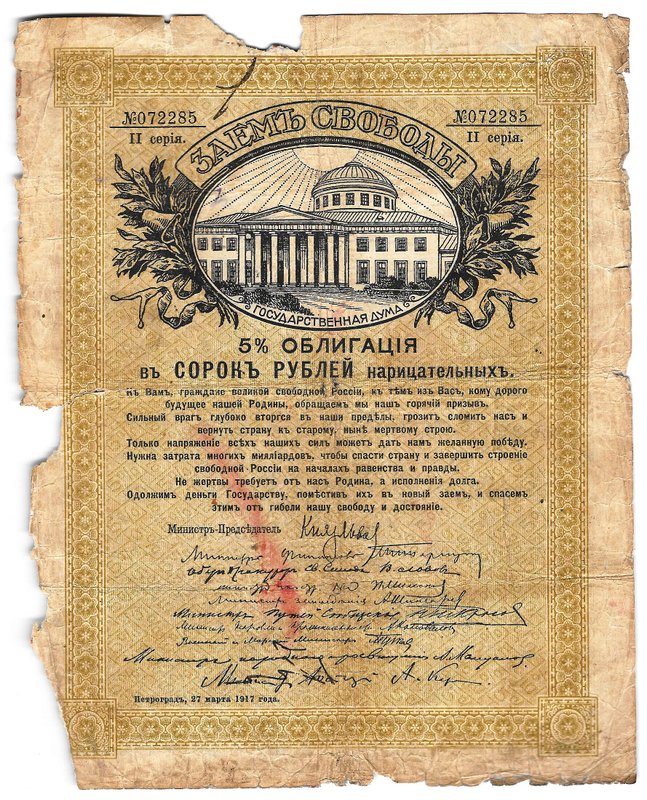 №072285 №072285
II серія. II серія.
ЗАЕМЪ СВОБОДЫ
ГОСУДАРСТВЕННАЯ ДУМА
5% ОБЛИГАЦІЯ
въ СОРОКЪ РУБЛЕЙ нарицательныхъ.
Къ Вамъ, граждане великой свободной Россіи, къ тѣмъ изъ Васъ, кому дорого
будущее нашей Родины, обращаемъ мы нашъ горячій призывъ.
Сильный врагъ глубоко вторгся въ наши предѣлы, грозитъ сломить насъ и
вернуть страну къ старому, нынѣ мертвому строю.
Только напряженіе всѣхъ нашихъ силъ можетъ дать намъ желанную побѣду.
Нужна затрата многихъ милліардовъ, чтобы спасти страну и завершить строеніе
свободной Россіи на началахъ равенства и правды.
Не жертвы требуетъ отъ насъ Родина, а исполненія долга.
Одолжимъ деньги Государству, помѣстивъ ихъ въ новый заемъ, и спасемъ
этимъ отъ гибели нашу свободу и достояніе.
Министръ-Предсѣдатель Кн. Львовъ
Министръ Финансовъ
Оберъ Прокуроръ Св. Синода В. Львовъ
Министръ Путей Сообщенія Н. Некрасовъ
Министръ Торговли и Промышленности А. Коноваловъ
Военный и Морской Министръ
Министръ народнаго просвѣщенія А. Мануиловъ
Петроградъ, 27 марта 1917 года.